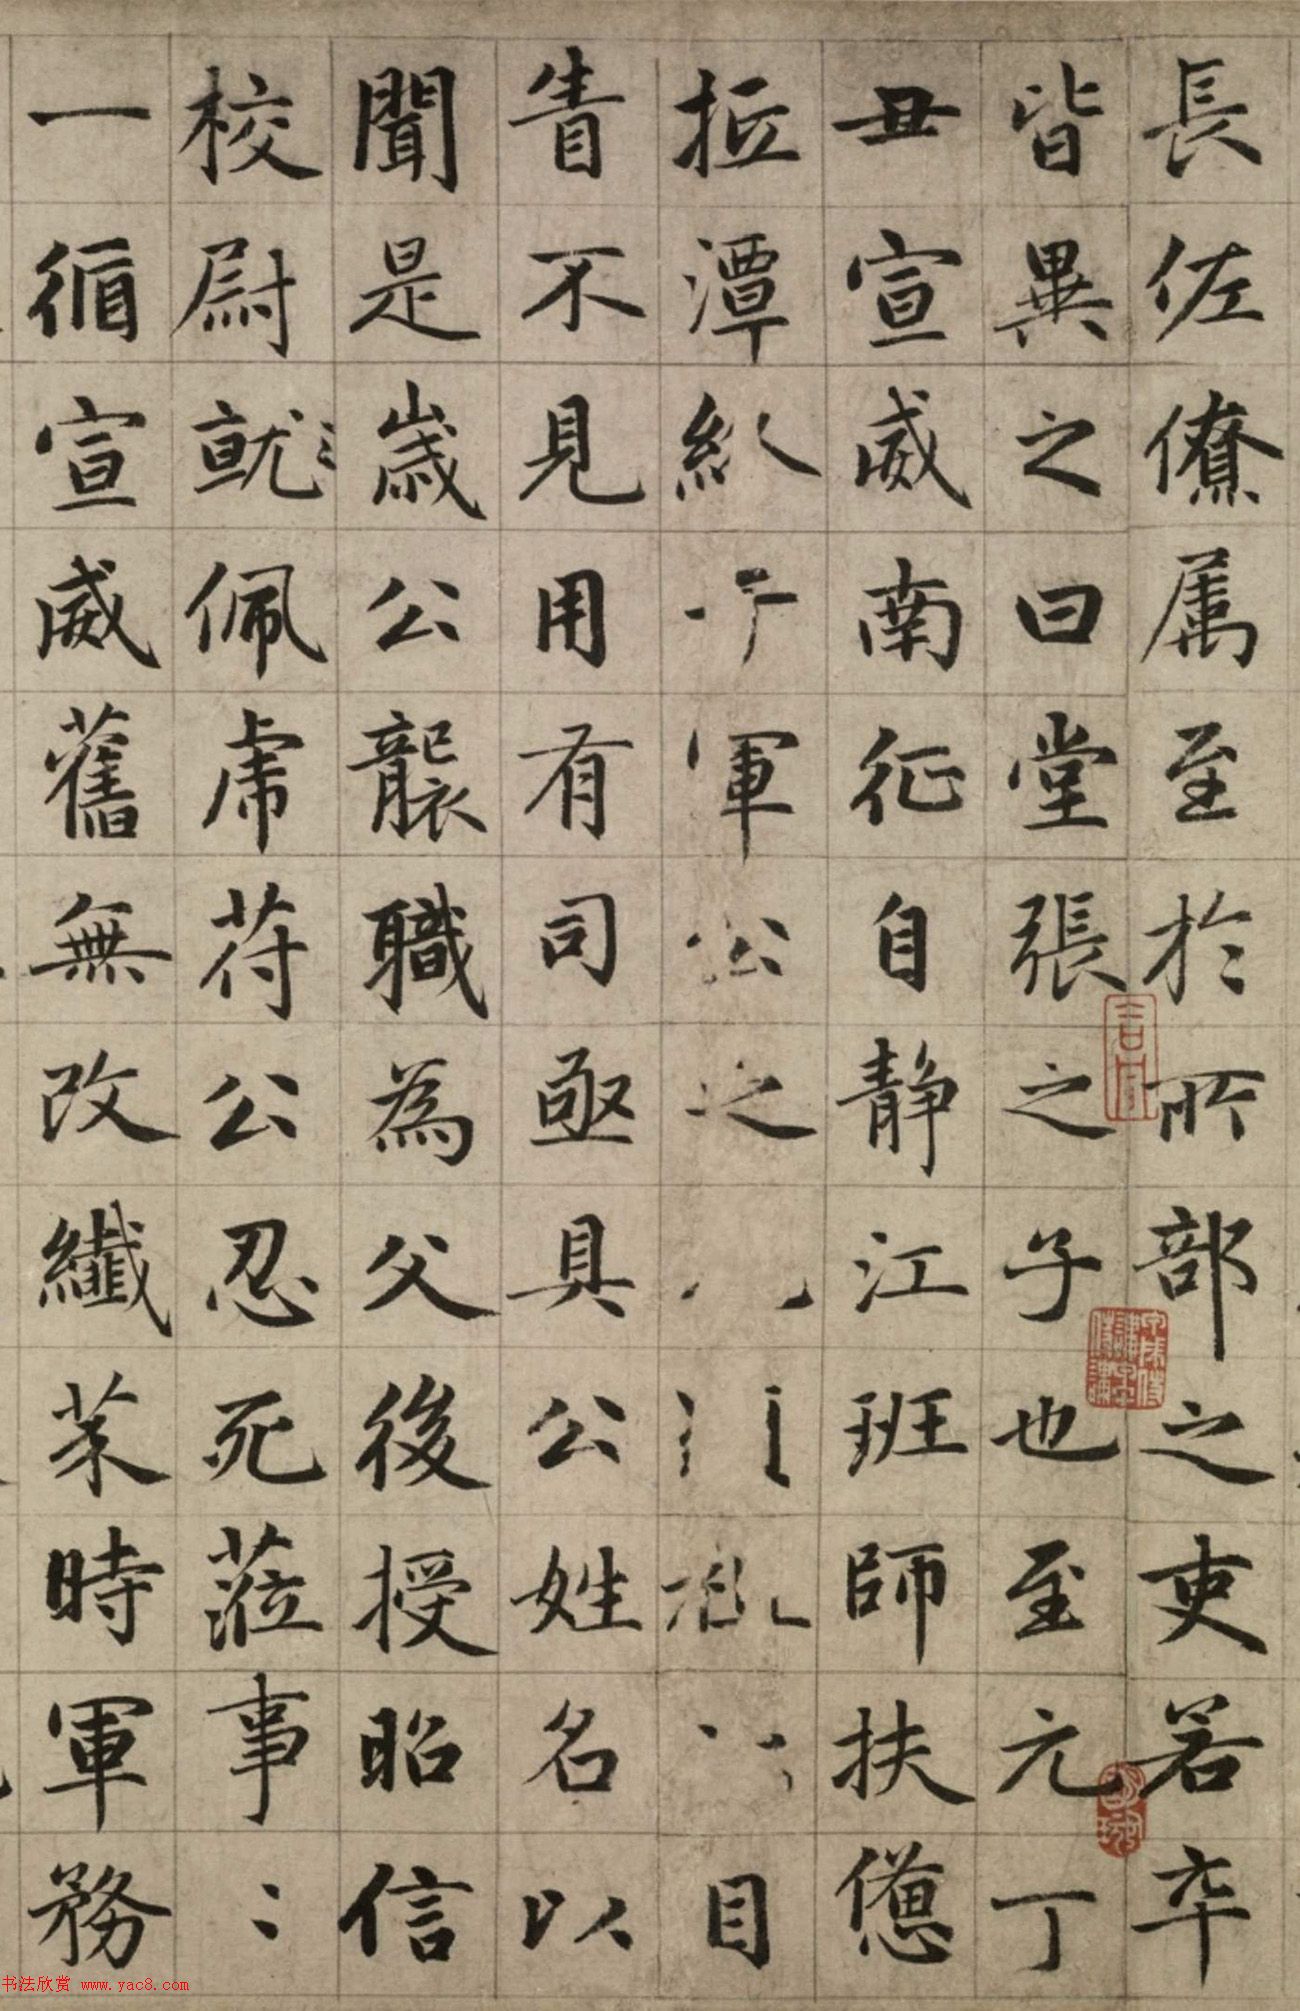 長佐僚属至於所部之吏若卒
皆異之曰堂張之子也至元丁
丑宣威南征自静江班師扶憊
抵潭 軍公之 目
眚不見用有司亟具公姓名以
聞是歲公襲職為父後授昭信
校尉就佩虎符公忍死蒞事〻
一循宣威舊無改纖 時軍務
书法欣赏 www.yac8.com